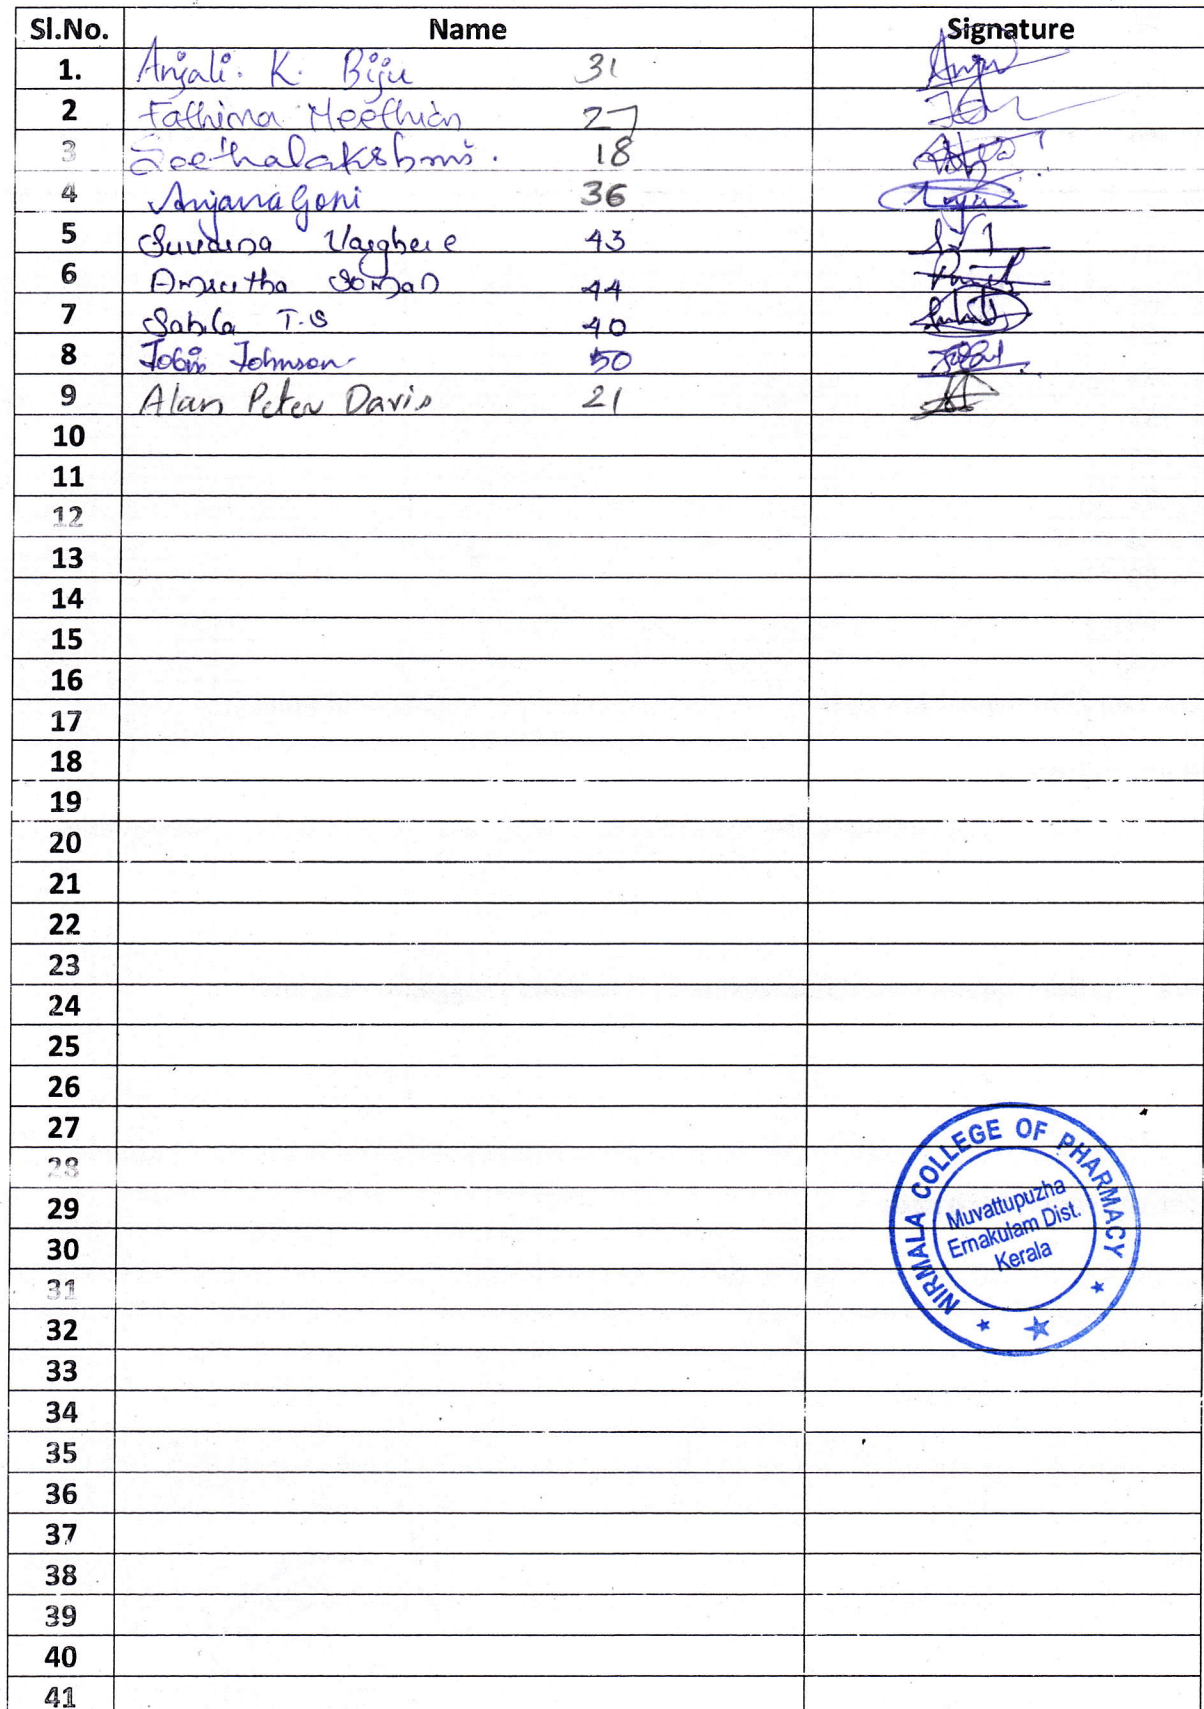 Sl.No. Name Signature
1. Anjali. K. Biju 31 Anju
2 Fathima Meethian 27
3 Seethalakshmi. 18
4 Anjana Gopi 36 Anju
5 Varghese 43
6 Amrutha Soman 44
7 Sabila T.S 40
8 Jobin Johnson 50
9 Alan Peter Davis 21
10
11
12
13
14
15
16
17
18
19
20
21
22
23
24
25
26
27
28
29
30
31
32
33
34
35
36
37
38
39
40
41
NIRMALA COLLEGE OF PHARMACY
Muvattupuzha
Ernakulam Dist.
Kerala